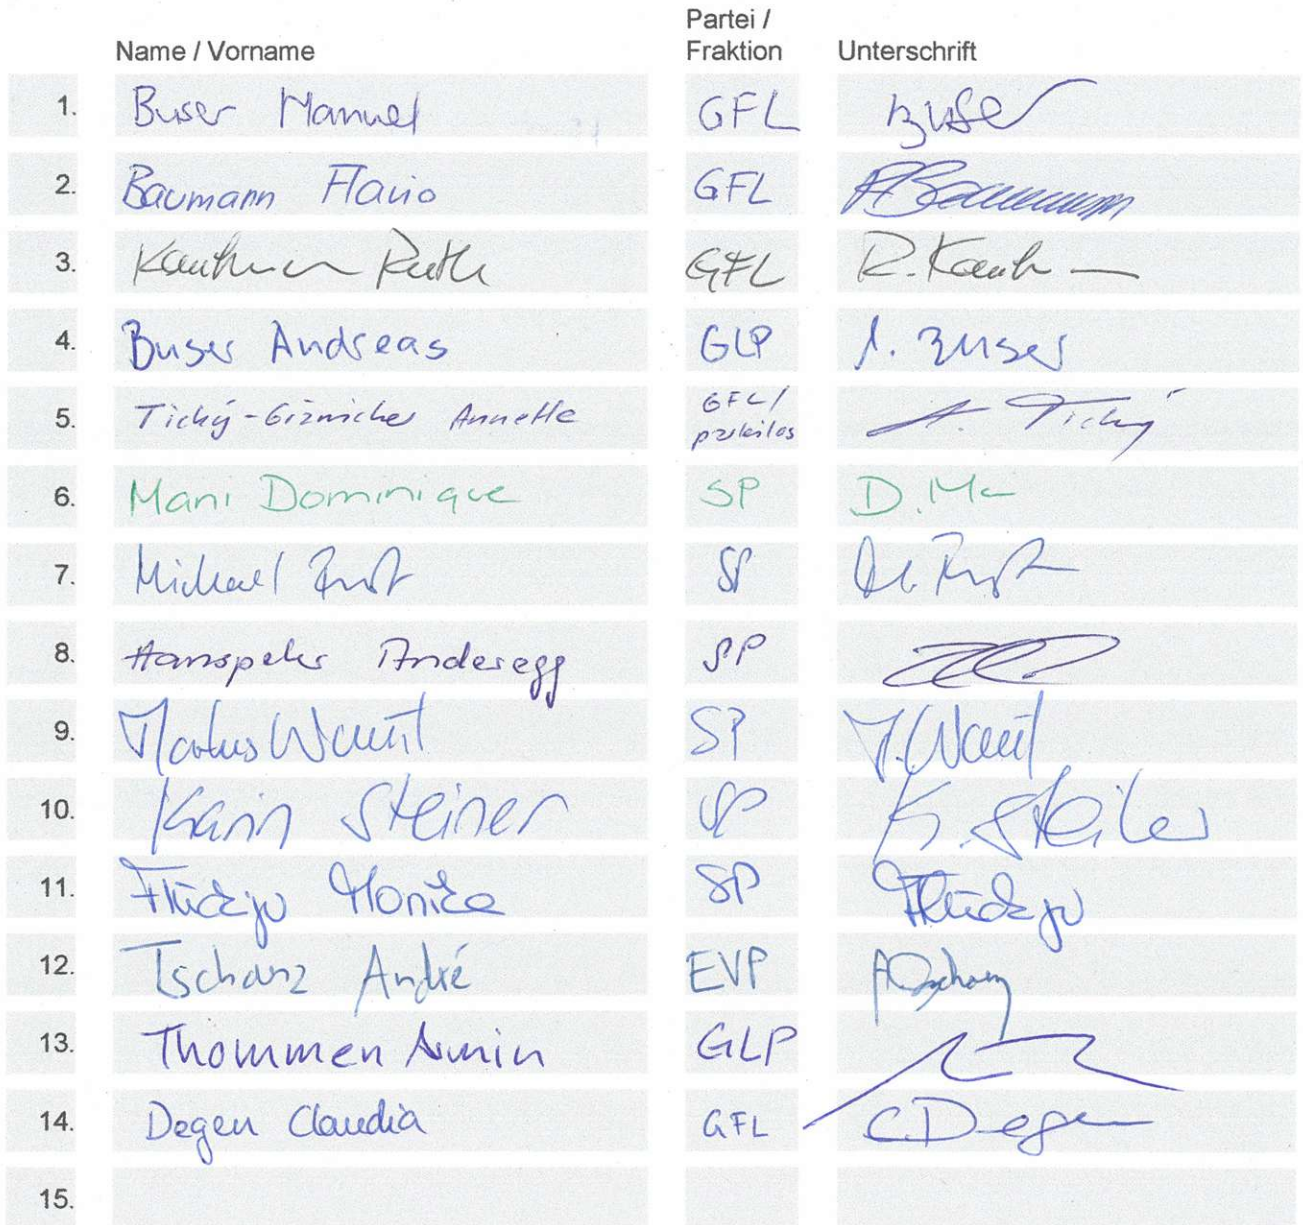 Partei /
Name / Vorname Fraktion Unterschrift
1. Buser Manuel GFL Buser
2. Baumann Flavio GFL Baumann
3. Ruth GFL R.
4. Buser Andreas GLP A. Buser
5. Tichý- Annette GFL / parteilos A. Tichý
6. Mani Dominique SP D. Ma
7. Michael SP
8. Hanspeter Anderegg SP
9. Markus SP
10. Karin Steiner SP K. Steiner
11. Flückiger Monika SP Flückiger
12. Tschanz André EVP ATschanz
13. Thommen Armin GLP
14. Degen Claudia GFL C.Degen
15.